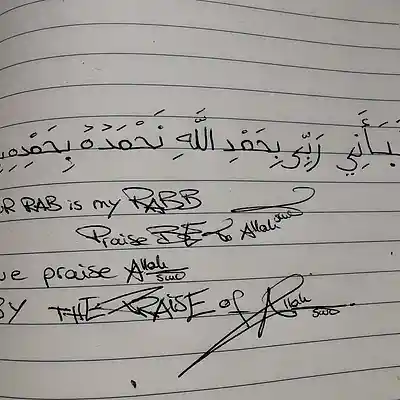 بَأَنِي رَبِّي بِحَمْدِ اللَّهِ نَحْمَدُهُ بِحَمْدِهِ
UR RAB is my RABB
Praise BE to Allah swt
we praise Allah swt
BY THE PRAISE of Allah swt